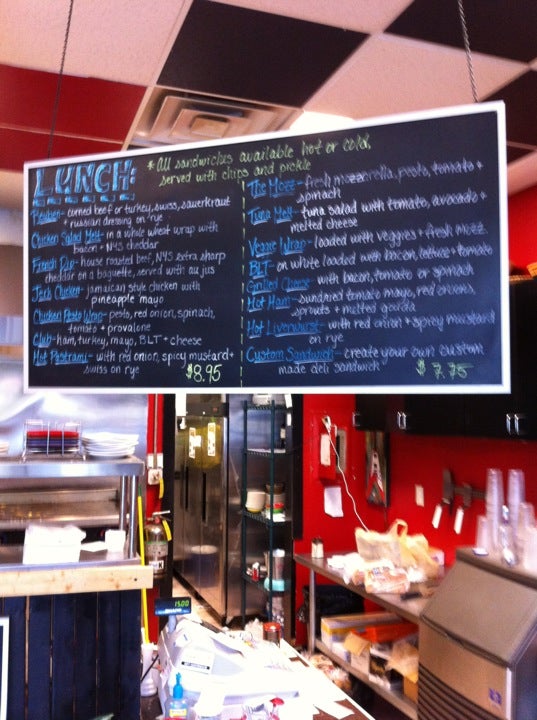 LUNCH:
*All sandwiches available hot or cold,
served with chips and pickle
Reuben- corned beef or turkey, swiss, sauerkraut
+ russian dressing on rye
Chicken Salad Melt- in a whole wheat wrap with
bacon + NYS cheddar
French Dip- house roasted beef, NYS extra sharp
cheddar on a baguette, served with au jus
Jerk Chicken- jamaican style chicken with
pineapple mayo
Chicken Pesto Wrap- pesto, red onion, spinach,
tomato + provalone
Club- ham, turkey, mayo, BLT + cheese
Hot Pastrami- with red onion, spicy mustard +
swiss on rye
$8.95
The Mozz- fresh mozzerella, pesto, tomato +
spinach
Tuna Melt- tuna salad with tomato, avocado +
melted cheese
Veggie Wrap- loaded with veggies + fresh mozz.
BLT- on white loaded with bacon, lettuce + tomato
Grilled Cheese- with bacon, tomato or spinach
Hot Ham- sundried tomato mayo, red onions,
sprouts + melted gouda
Hot Liverwurst- with red onion + spicy mustard
on rye
Custom Sandwich- create your own custom
made deli sandwich
$7.75